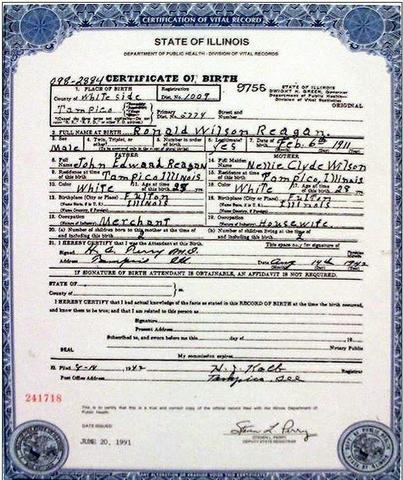 CERTIFICATION OF VITAL RECORD
STATE OF ILLINOIS
DEPARTMENT OF PUBLIC HEALTH - DIVISION OF VITAL RECORDS
098-2884 CERTIFICATE OF BIRTH 9756
1. PLACE OF BIRTH Registration STATE OF ILLINOIS
County of White side Dist. No. 1007 DWIGHT H. GREEN, Governor
Department of Public Health
Division of Vital Statistics
Tampico Primary Dist. No. 5774 Street and Number ORIGINAL
3. FULL NAME AT BIRTH Ronald Wilson Reagan.
Male Yes Feb. 6th 1911
FATHER MOTHER
8. Full Name John Edward Reagan Full Maiden Name Nellie Clyde Wilson
9. Residence at time of this birth Tampico Illinois Residence at time of this birth Tampico, Illinois
10. Color White 11. Age at time of this birth 28 yrs Color White Age at time of this birth 28
12. Birthplace Fulton Illinois Birthplace Fulton Illinois
13. Occupation Merchant Occupation Housewife
20. (a) Number of children born to this mother at the time of and including this birth 2 (b) Number of children living at the time of and including this birth 2
21. I HEREBY CERTIFY that I was the Attendant at this Birth. This space for signature of
Signed M.D.
Address Tampico Ill Date Aug 14th 1942
IF SIGNATURE OF BIRTH ATTENDANT IS OBTAINABLE, AN AFFIDAVIT IS NOT REQUIRED.
STATE OF
County of ss
I HEREBY CERTIFY that I had actual knowledge of the facts as stated in this RECORD OF BIRTH at the time the birth occurred,
and know them to be true; and that I am related to this person as
Signature
Present Address
Subscribed to, and sworn before me this day of 19
SEAL Notary Public
My commission expires
Filed 1942 Registrar
Post Office Address Tampico
241718
This is to certify that this is a true and correct copy of the official record filed with the Illinois Department of
Public Health.
DATE ISSUED
JUNE 20, 1991
STEVEN L. PERRY
DEPUTY STATE REGISTRAR
ANY ALTERATION OR ERASURE VOIDS THIS CERTIFICATE